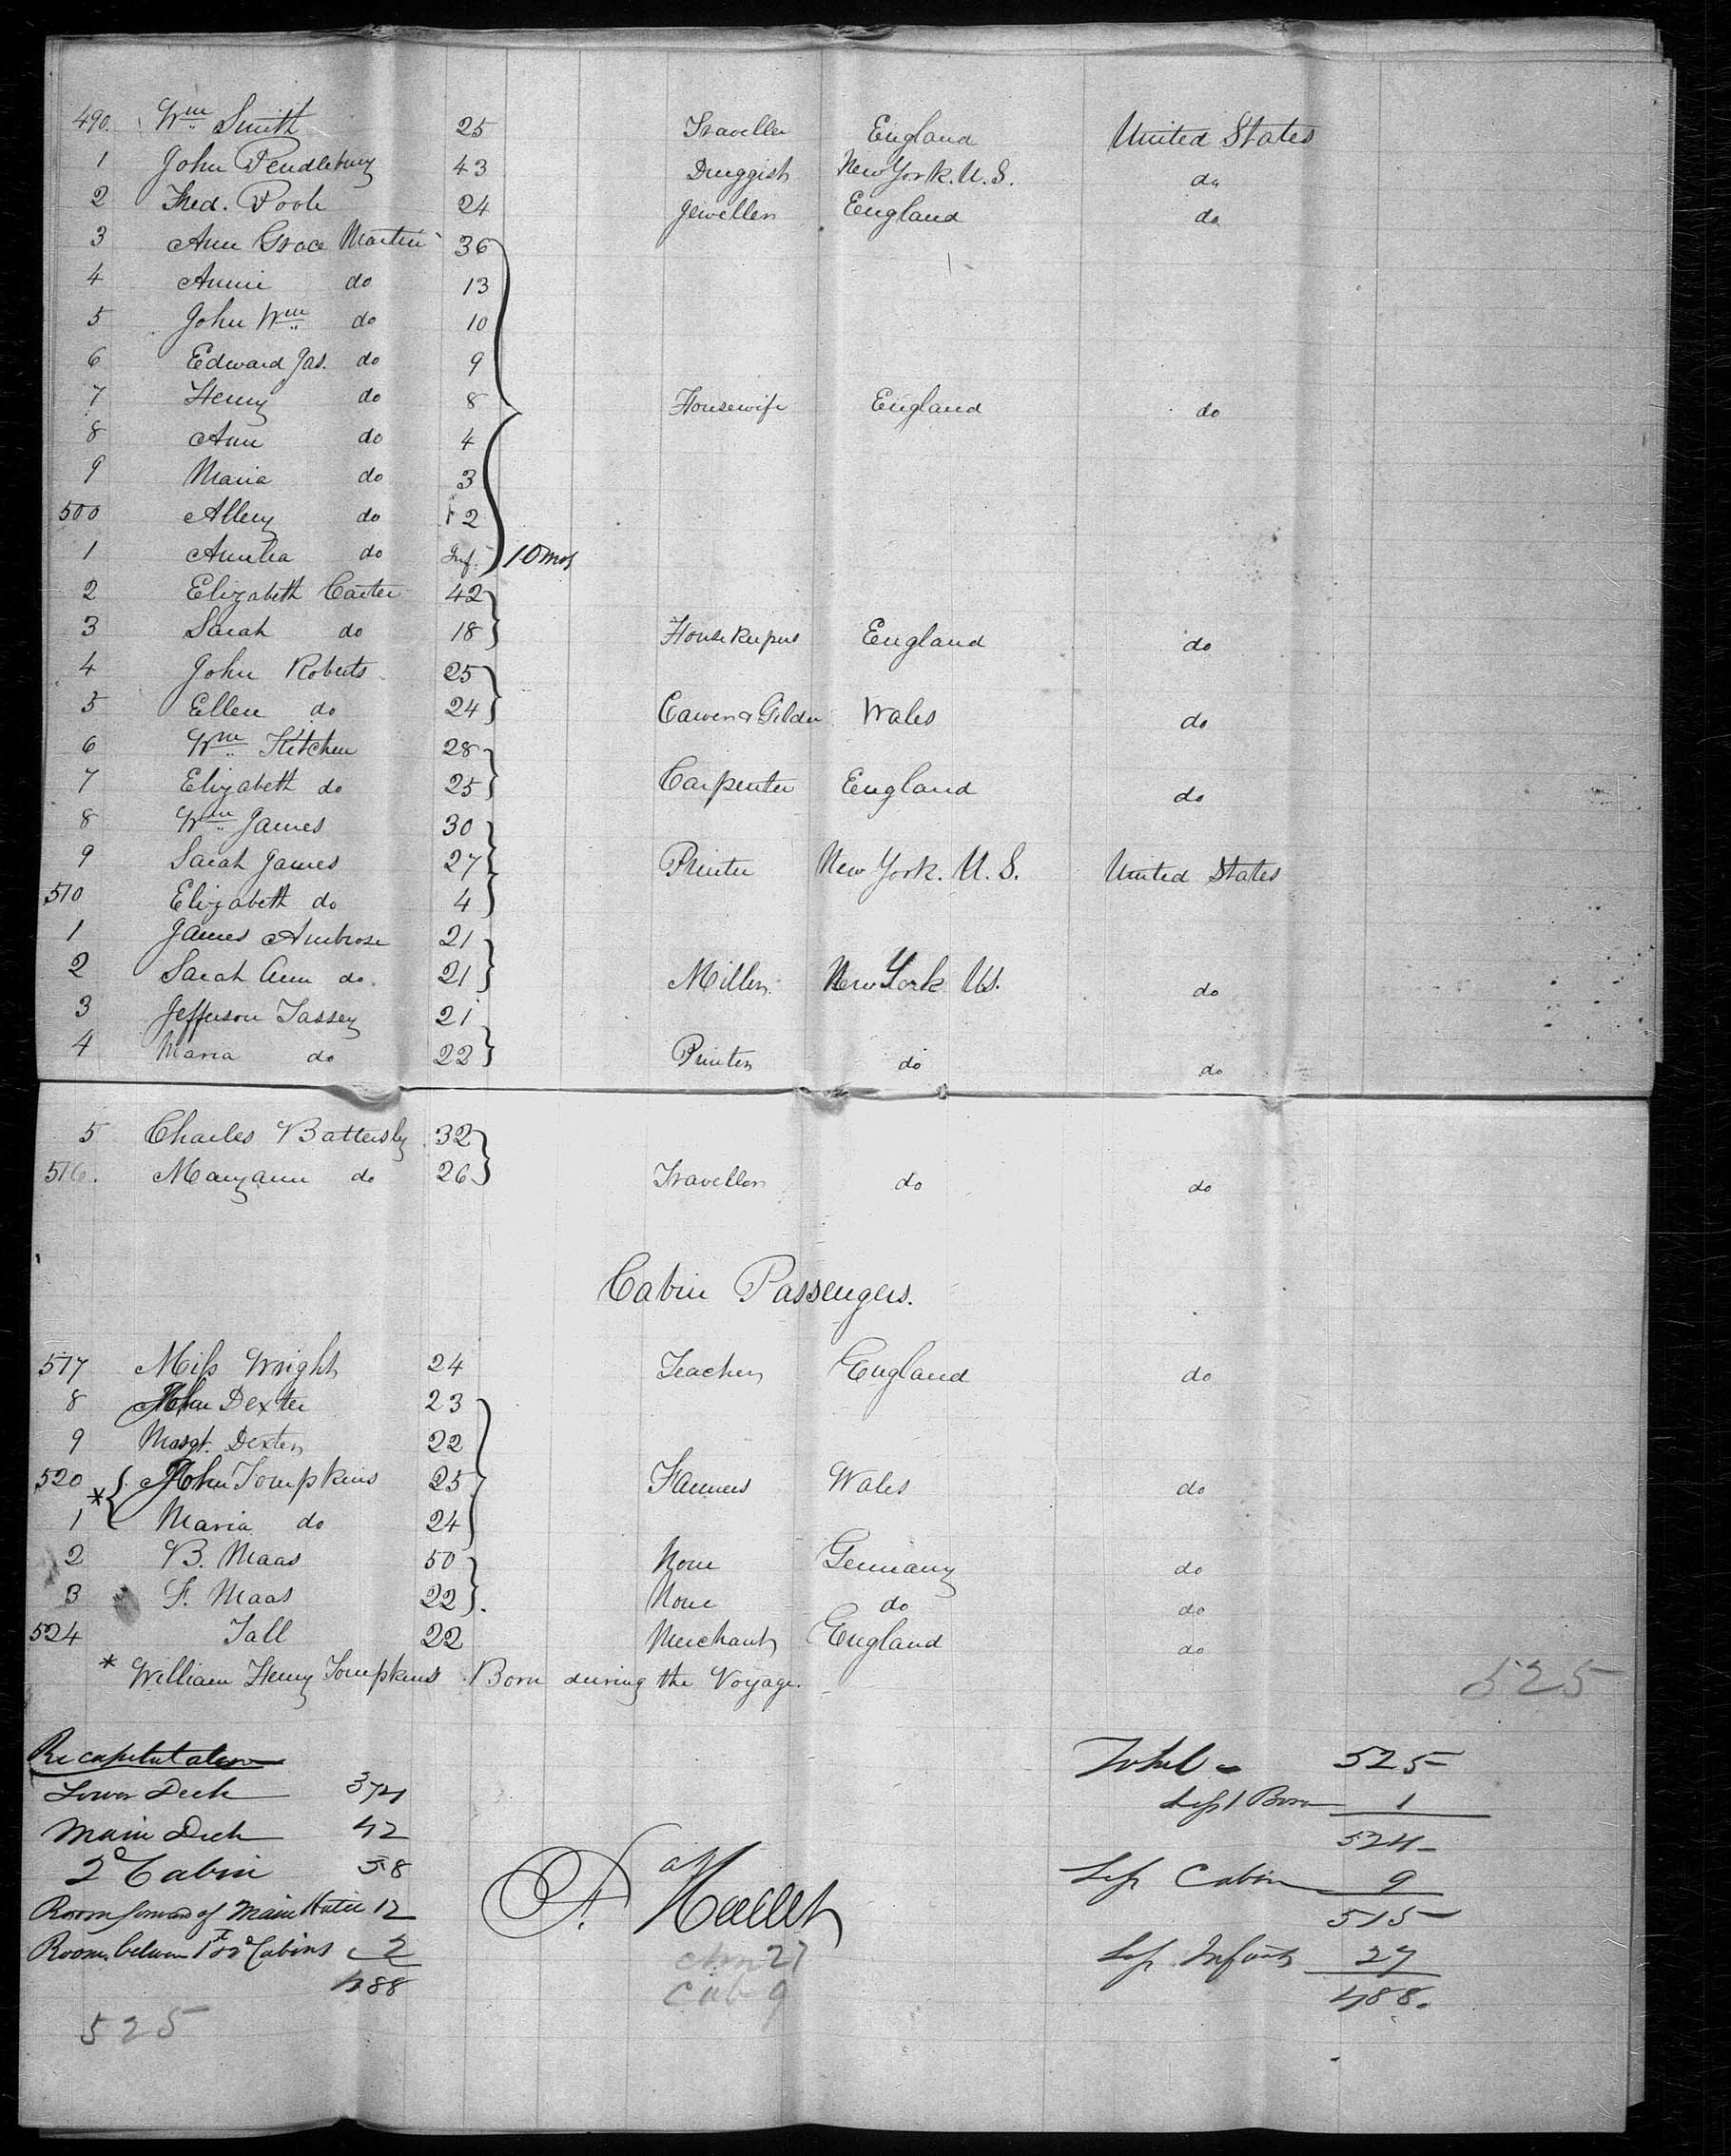 490. Wm Smith 25 Traveller England United States
1 John Pendlebury 43 Druggist New York. U.S. do
2 Fred. Poole 24 Jeweller England do
3 Ann Grace Martin 36
4 Annie do 13
5 John Wm do 10
6 Edward Jas. do 9
7 Henry do 8 Housewife England do
8 Ann do 4
9 Maria do 3
500 Allery do 2
1 Amelia do Inf. 10 mos
2 Elizabeth Carter 42
3 Sarah do 18 Housekeepers England do
4 John Roberts 25
5 Ellen do 24 Carver & Gilder Wales do
6 Wm Kitchen 28
7 Elizabeth do 25 Carpenter England do
8 Wm James 30
9 Sarah James 27 Printer New York. U.S. United States
510 Elizabeth do 4
1 James Ambrose 21
2 Sarah Ann do. 21 Miller New York US. do
3 Jefferson Tassey 21
4 Maria do 22 Printer do do
5 Charles Battersby 32
516. Maryann do 26 Traveller do do
Cabin Passengers.
517 Miss Wright 24 Teacher England do
8 John Dexter 23
9 Margt. Dexter 22
520 * John Tompkins 25 Farmers Wales do
1 Maria do 24
2 B. Maas 50 None Germany do
3 F. Maas 22 None do do
524 Tall 22 Merchant England do
* William Henry Tompkins Born during the Voyage.
525
Recapitulation
Lower Deck 374
Main Deck 42
2d Cabin 58
Room forward of Main Hatch 12
Rooms between 1st & 2d Cabins 2
488
525
Total - 525
Less 1 Born 1
524
Less Cabin 9
515
Less Infants 27
488.
27
Cab 9